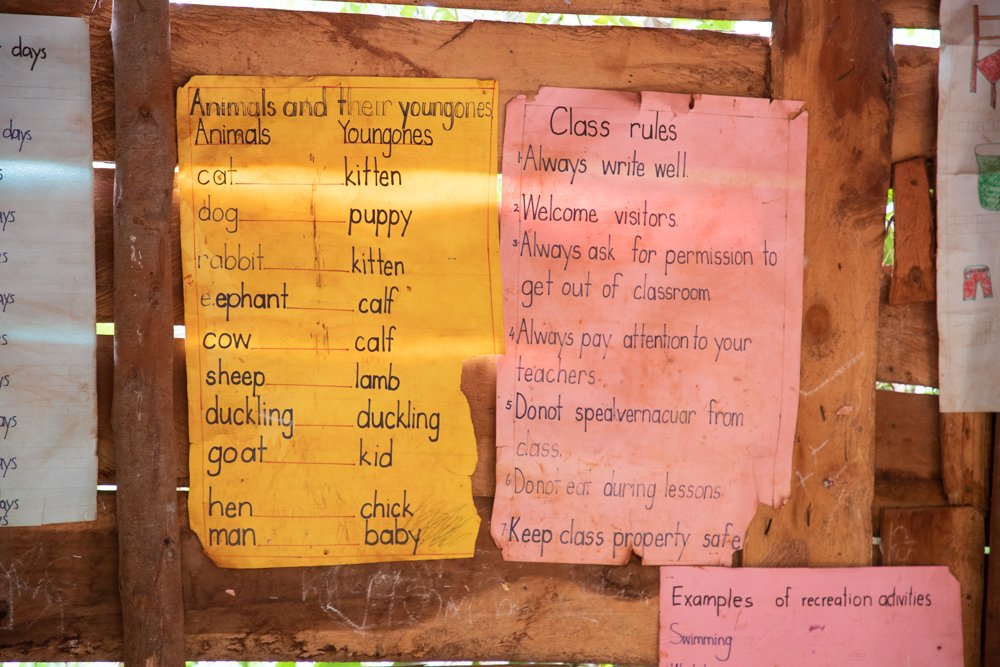 days
days
Animals and their youngones
Animals Youngones
cat kitten
dog puppy
rabbit kitten
e.ephant calf
cow calf
sheep lamb
duckling duckling
goat kid
hen chick
man baby
Class rules
1 Always write well.
2 Welcome visitors.
3 Always ask for permission to
get out of classroom
4 Always pay attention to your
teachers.
5 Donot from
class.
6 Donot eat during lessons.
7 Keep class property safe
Examples of recreation activities
Swimming